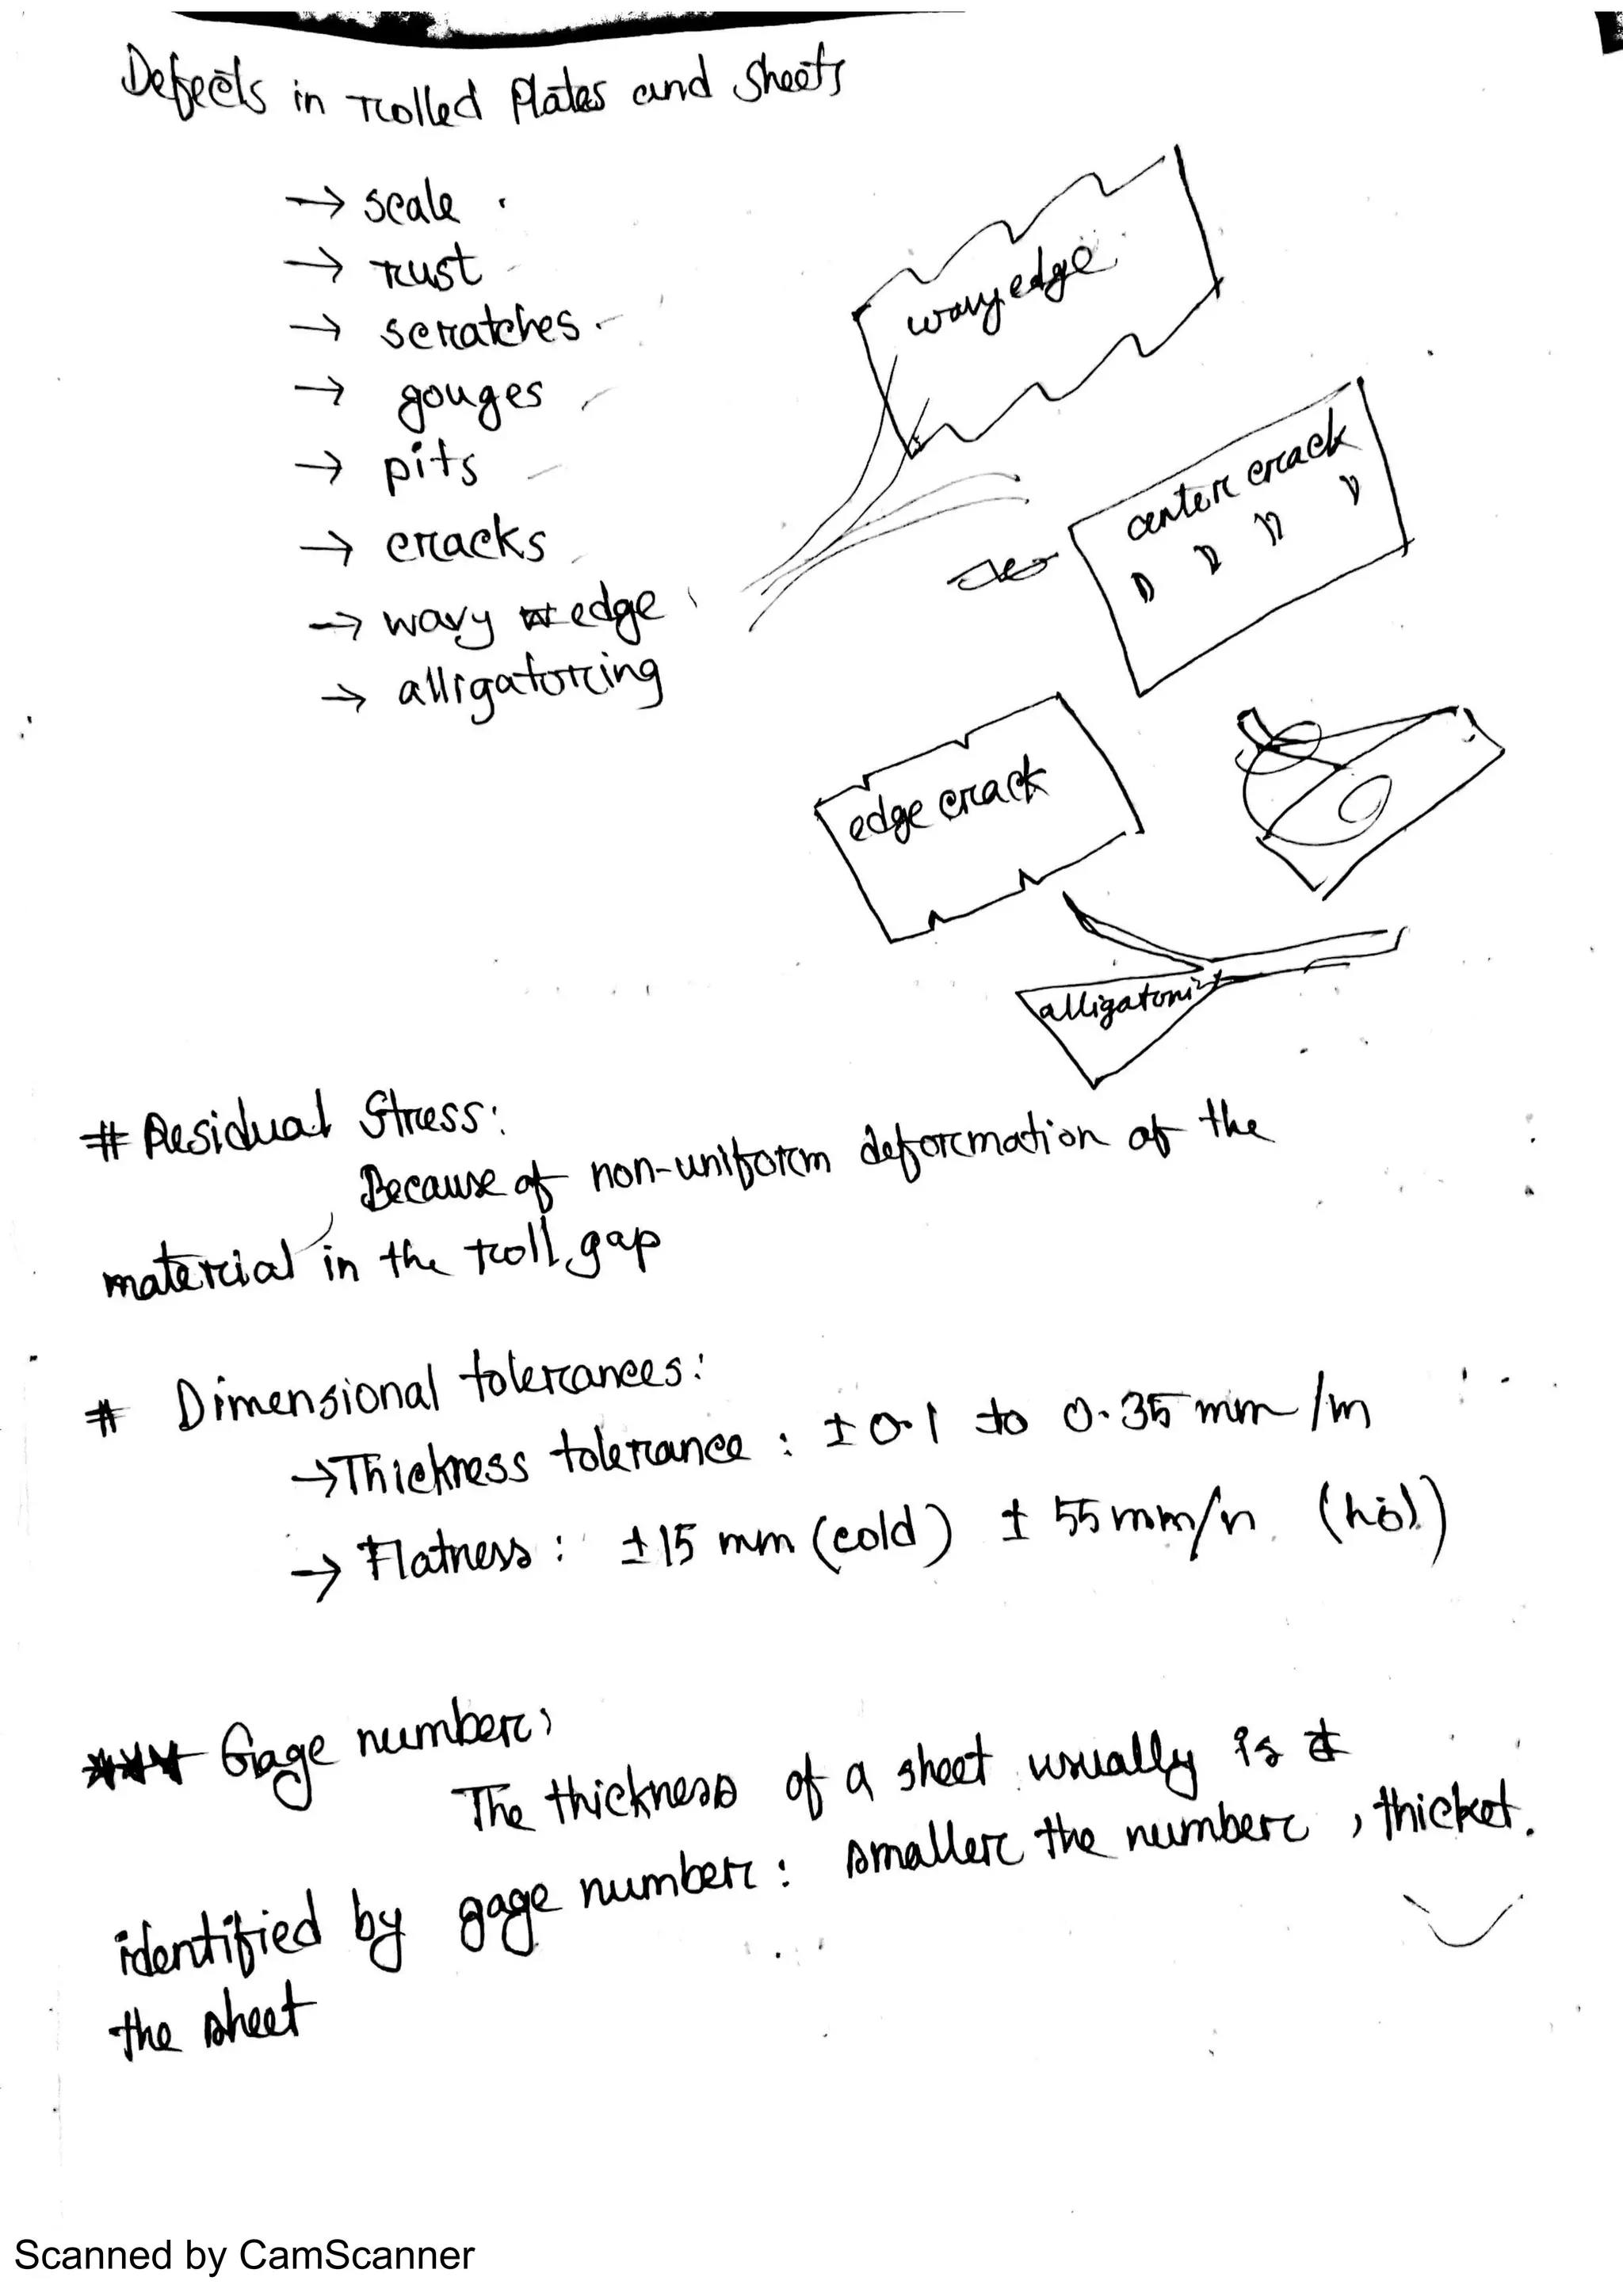 Defects in rolled Plates and Sheets
→ scale
→ rust
→ scratches
→ gouges
→ pits
→ cracks
→ wavy edge
→ alligatoring
wavy edge
center crack
edge crack
# Residual Stress:
Because of non-uniform deformation of the
material in the roll gap
# Dimensional tolerances:
→ Thickness tolerance : ± 0.1 to 0.35 mm/m
→ Flatness : ±15 mm (cold) ± 55 mm/
*** Gage number:
The thickness of a sheet usually is
identified by gage number: smaller the number, thicker.
the sheet
Scanned by CamScanner